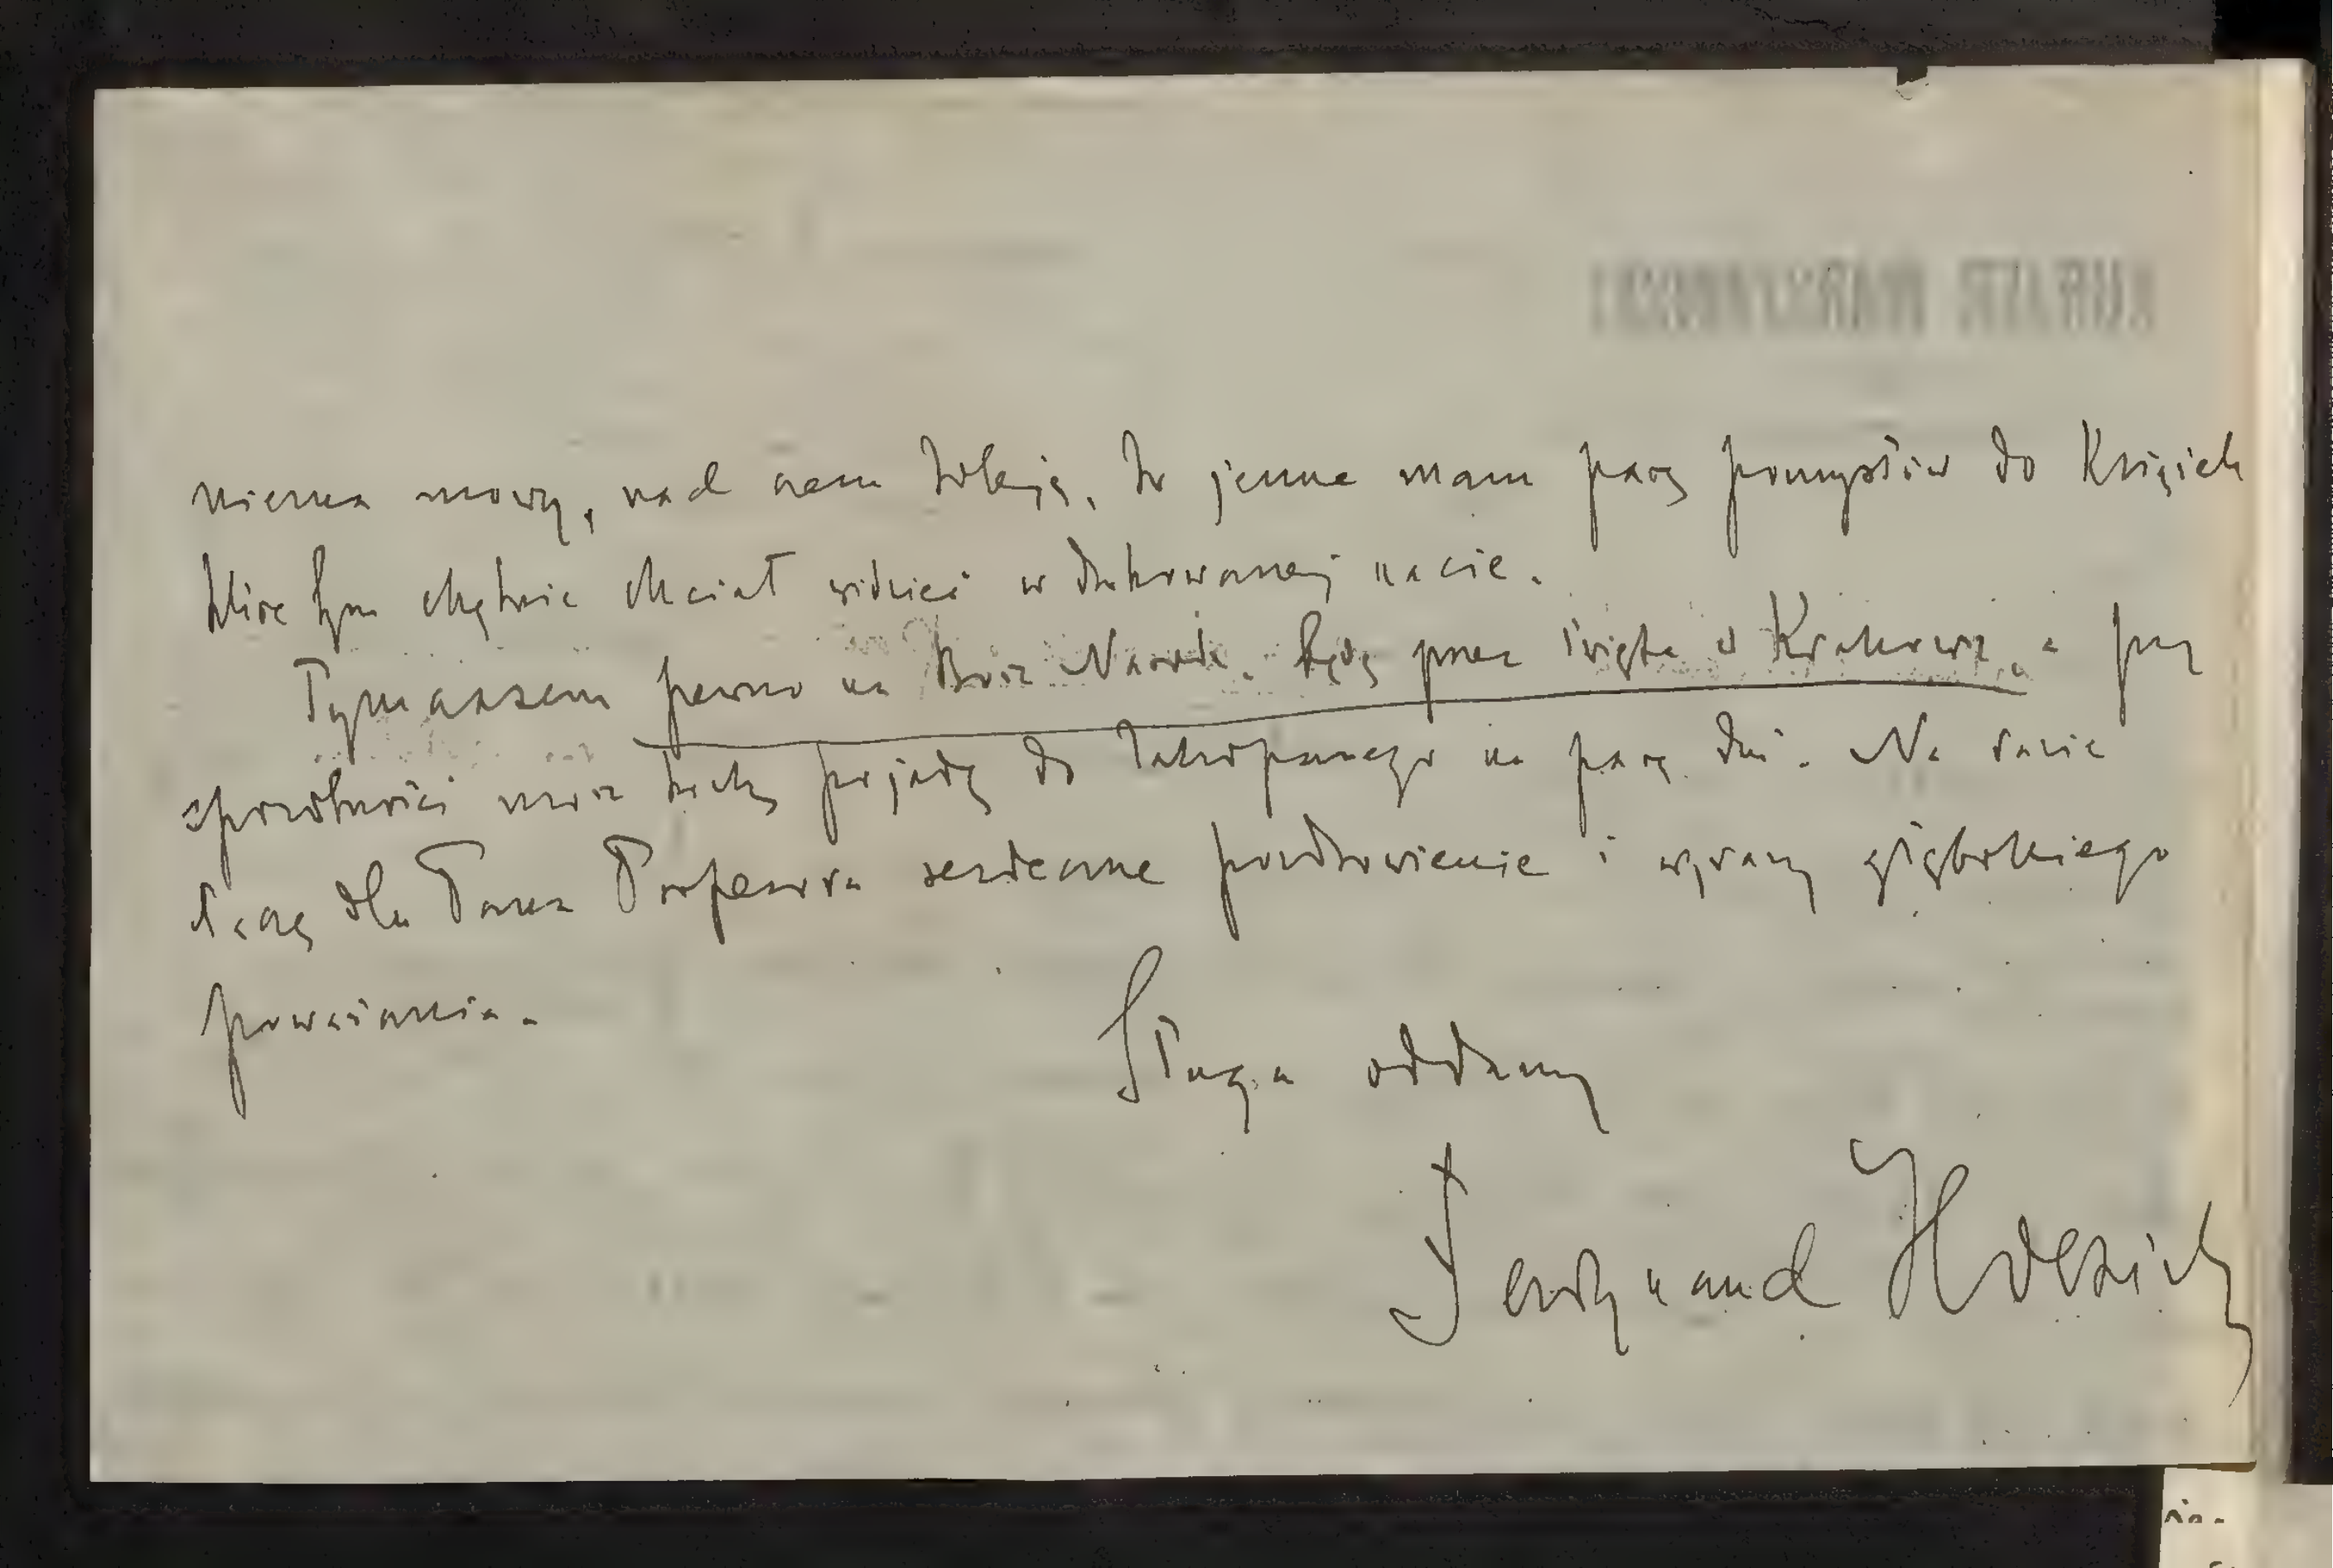 niema mowy, nad czem boleję, bo jeszcze mam parę pomysłów do książek
które bym chętnie chciał widzieć w drukowanej szacie.
Tymczasem pewno na Boże Narodz. będę przez święta w Krakowie, a przy
sposobności może trochę pojadę do Zakopanego na parę dni. Na razie
łączę dla Pana Profesora serdeczne pozdrowienie i wyrazy głębokiego
poważania.
Sługa oddany
Ferdynand Hoesick
KURJER WARSZAWSKI